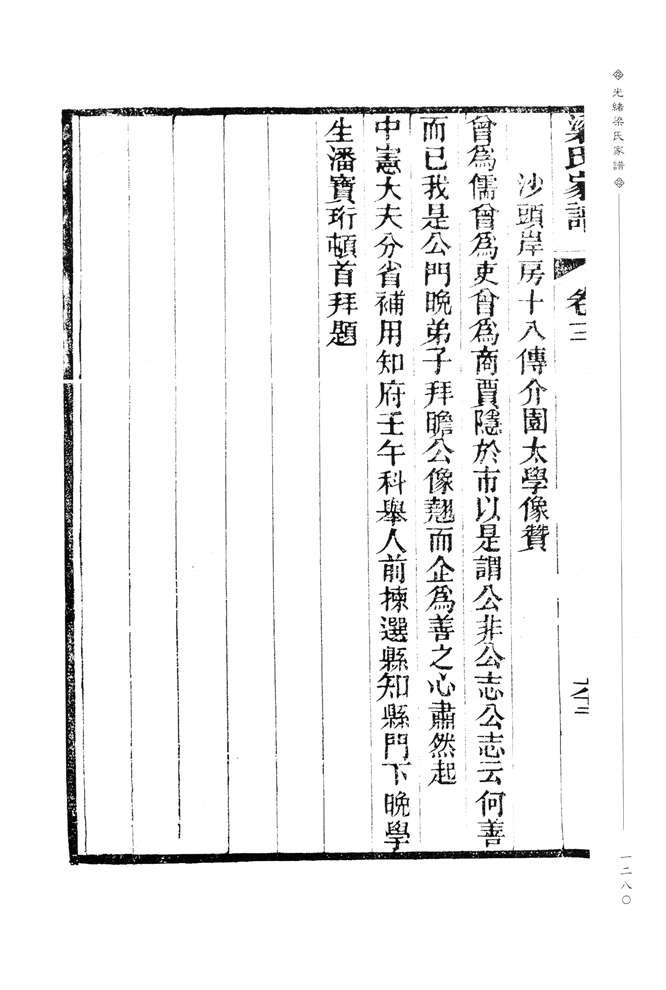 光緒梁氏家譜
一二八〇
梁氏家譜 卷三
沙頭岸房十八傳介園太學像贊
曾爲儒曾爲吏曾爲商賈隱於市以是謂公非公志公志云何善
而已我是公門晚弟子拜瞻公像翹而企爲善之心肅然起
中憲大夫分省補用知府壬午科舉人前揀選縣知縣門下晚學
生潘寶珩頓首拜題